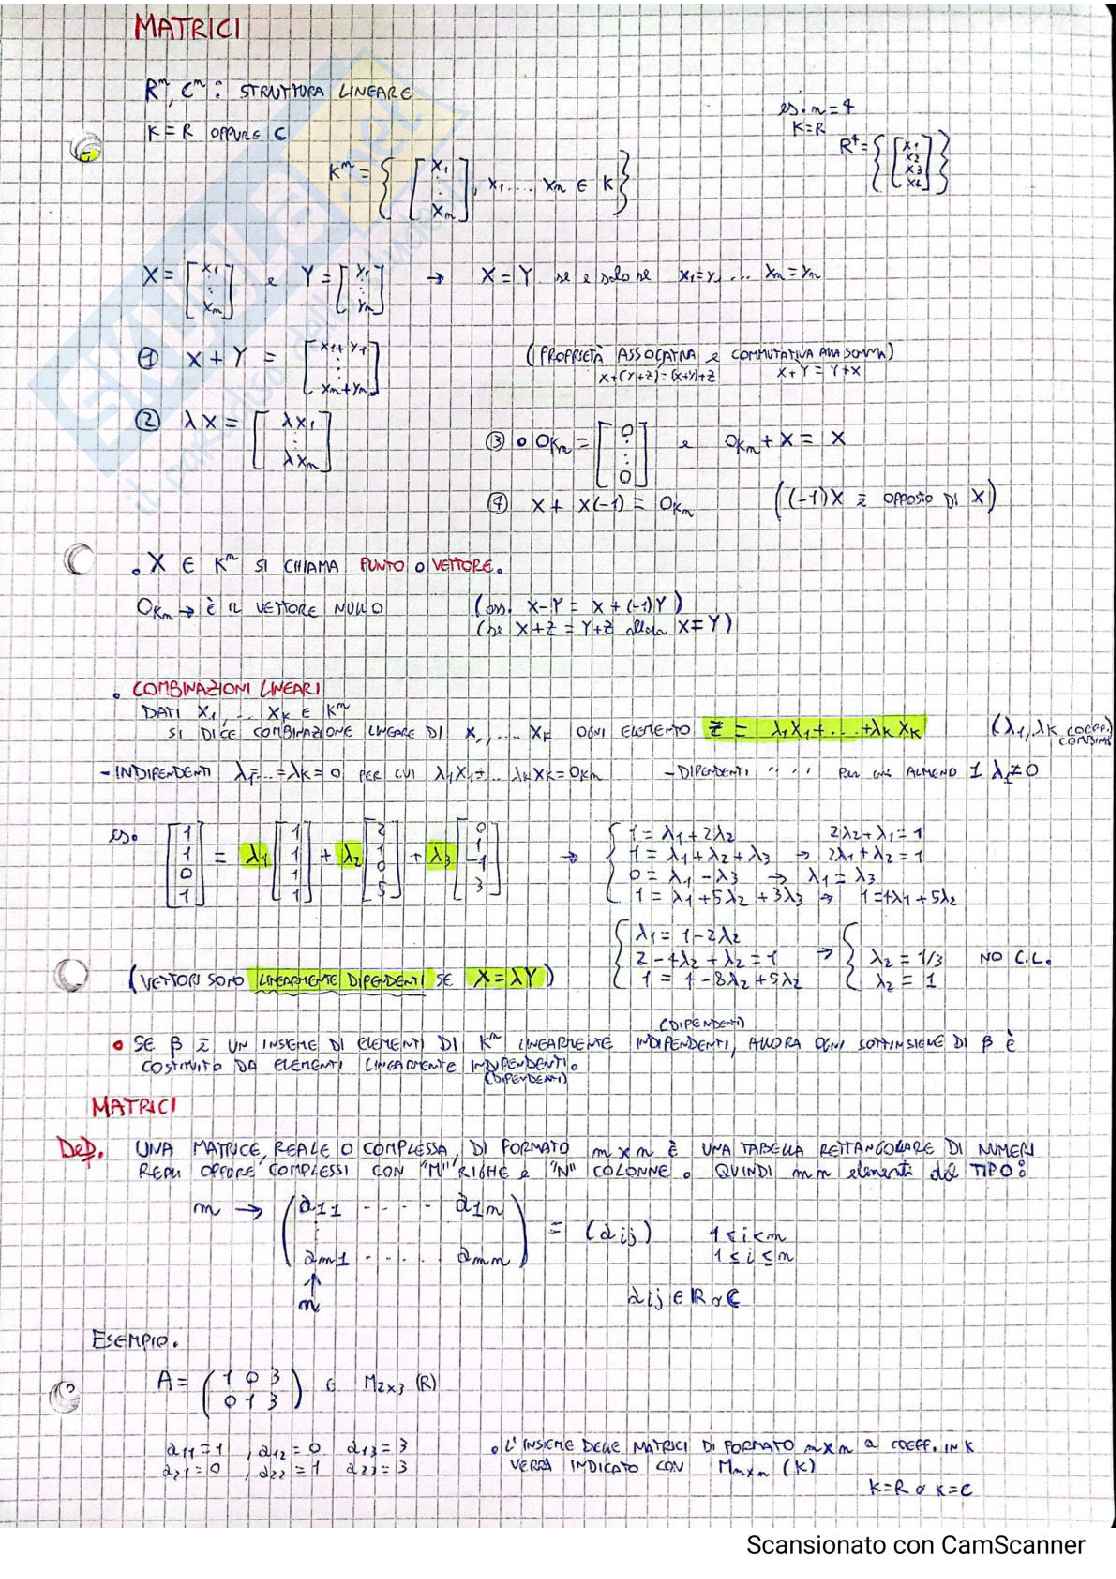 MATRICI
Rⁿ, Cⁿ : STRUTTURA LINEARE
K = R OPPURE C
es. n = 4
K=R
R⁴ = { [x₁ x₂ x₃ x₄] }
Kⁿ = { [x₁ ⋮ xₙ], x₁ .... xₙ ∈ K }
X = [x₁ ⋮ xₙ] e Y = [y₁ ⋮ yₙ] → X = Y se e solo se x₁=y₁ ... xₙ=yₙ
① X + Y = [x₁+y₁ ⋮ xₙ+yₙ] (PROPRIETÀ ASSOCIATIVA e COMMUTATIVA ALLA SOMMA)
X+(Y+Z)=(X+Y)+Z X+Y = Y+X
② λX = [λx₁ ⋮ λxₙ]
③ • 0Kₙ = [0 ⋮ 0] e 0Kₙ + X = X
④ X + X(-1) = 0Kₙ ((-1)X È OPPOSTO DI X)
• X ∈ Kⁿ SI CHIAMA PUNTO O VETTORE.
0Kₙ → È IL VETTORE NULLO (oss. X-Y = X+(-1)Y)
(se X+Z = Y+Z allora X=Y)
• COMBINAZIONI LINEARI
DATI X₁, ... Xₖ ∈ Kⁿ
SI DICE COMBINAZIONE LINEARE DI X₁, ... Xₖ OGNI ELEMENTO Z = λ₁X₁+...+λₖXₖ (λ₁, λₖ COEFF.)
COMBINAZ
- INDIPENDENTI λ₁=...=λₖ=0 PER CUI λ₁X₁+... λₖXₖ=0Kₙ - DIPENDENTI " " PER ALMENO 1 λ₁≠0
es. [1 1 0 1] = λ₁ [1 1 1 1] + λ₂ [2 1 0 5] + λ₃ [0 1 -1 3] →
{ 1 = λ₁+2λ₂ 2λ₂+λ₁=1
1 = λ₁+λ₂+λ₃ → 2λ₁+λ₂=1
0 = λ₁-λ₃ → λ₁=λ₃
1 = λ₁+5λ₂+3λ₃ → 1=4λ₁+5λ₂
{ λ₁= 1-2λ₂
2-4λ₂+λ₂=1 → { λ₂ = 1/3 NO C.L.
1 = 1-8λ₂+5λ₂ λ₂ = 1
(VETTORI SONO LINEARMENTE DIPENDENTI SE X=λY)
(DIPENDENTI)
• SE β È UN INSIEME DI ELEMENTI DI Kⁿ LINEARMENTE INDIPENDENTI, ALLORA OGNI SOTTINSIEME DI β È
COSTITUITO DA ELEMENTI LINEARMENTE INDIPENDENTI.
(DIPENDENTI)
MATRICI
Def. UNA MATRICE, REALE O COMPLESSA, DI FORMATO m x n È UNA TABELLA RETTANGOLARE DI NUMERI
REALI OPPURE COMPLESSI CON "M" RIGHE e "N" COLONNE. QUINDI mn elementi del TIPO:
m → ( a₁₁ .... a₁ₙ
⋮
aₘ₁ .... aₘₙ ) = (aᵢⱼ) 1 ≤ i ≤ m
1 ≤ i ≤ n
↑
n
aᵢⱼ ∈ R o C
ESEMPIO.
A = ( 1 0 3
0 1 3 ) ∈ M₂ₓ₃ (R)
a₁₁=1 , a₁₂=0 a₁₃=3
a₂₁=0 , a₂₂=1 a₂₃=3
• L'INSIEME DELLE MATRICI DI FORMATO mxn a COEFF. IN K
VERRÀ INDICATO CON Mₘₓₙ (K)
K=R o K=C
Scansionato con CamScanner